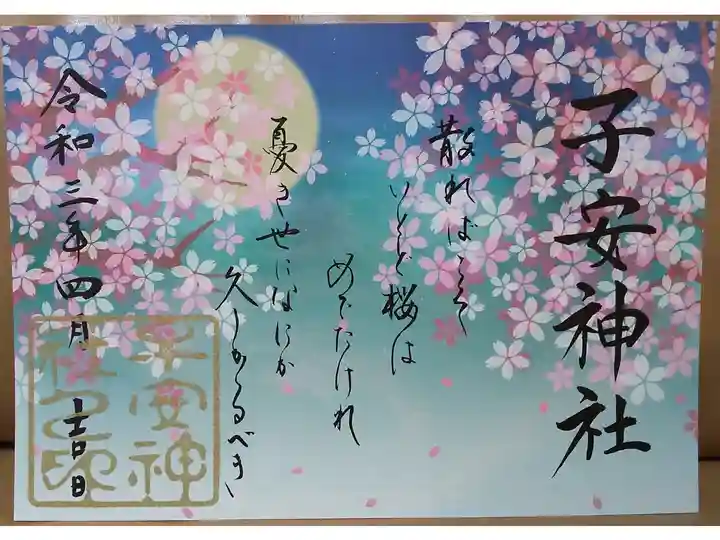 子安神社
散ればこそ
いとど桜は
めでたけれ
憂き世になにか
久しかるべき
令和三年四月 吉日
子安神